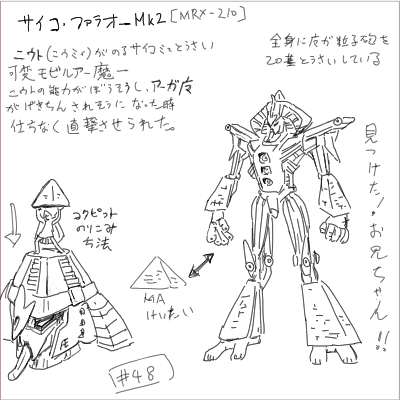 サイコ・ファラオーMk2 [MRX-210]
ニウト(こウミィ)がのるサイコミュとうさい
可変モビルアー魔ー
ニウトの能力がぼうそうし、アーガ度
がげきちんされそうになった時
仕ちなく直撃させられた。
全身にが粒子砲を
20基とうさいしている
見つけた!お兄ちゃん!!
コクピット
のりこみ
方法
MA
けいたい
#48